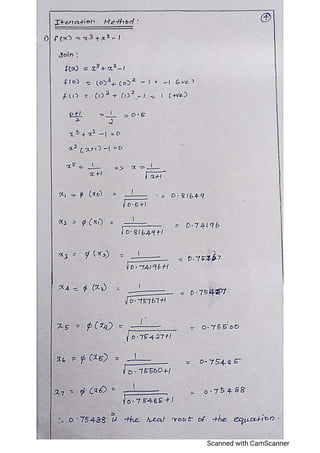 4
Iteration Method:
1) f(x) = x³ + x² - 1
Soln:
f(x) = x³ + x² - 1
f(0) = (0)³ + (0)² - 1 = -1 (-ve)
f(1) = (1)³ + (1)² - 1 = 1 (+ve)
0+1/2 = 1/2 = 0.5
x³ + x² - 1 = 0
x² (x+1) - 1 = 0
x² = 1/x+1 => x = 1/√x+1
x₁ = φ (x₀) = 1/√0.5+1 = 0.81649
x₂ = φ (x₁) = 1/√0.81649+1 = 0.74196
x₃ = φ (x₂) = 1/√0.74196+1 = 0.75767
x₄ = φ (x₃) = 1/√0.75767+1 = 0.75427
x₅ = φ (x₄) = 1/√0.75427+1 = 0.75500
x₆ = φ (x₅) = 1/√0.75500+1 = 0.75485
x₇ = φ (x₆) = 1/√0.75485+1 = 0.75488
∴ 0.75488 is the real root of the equation.
Scanned with CamScanner